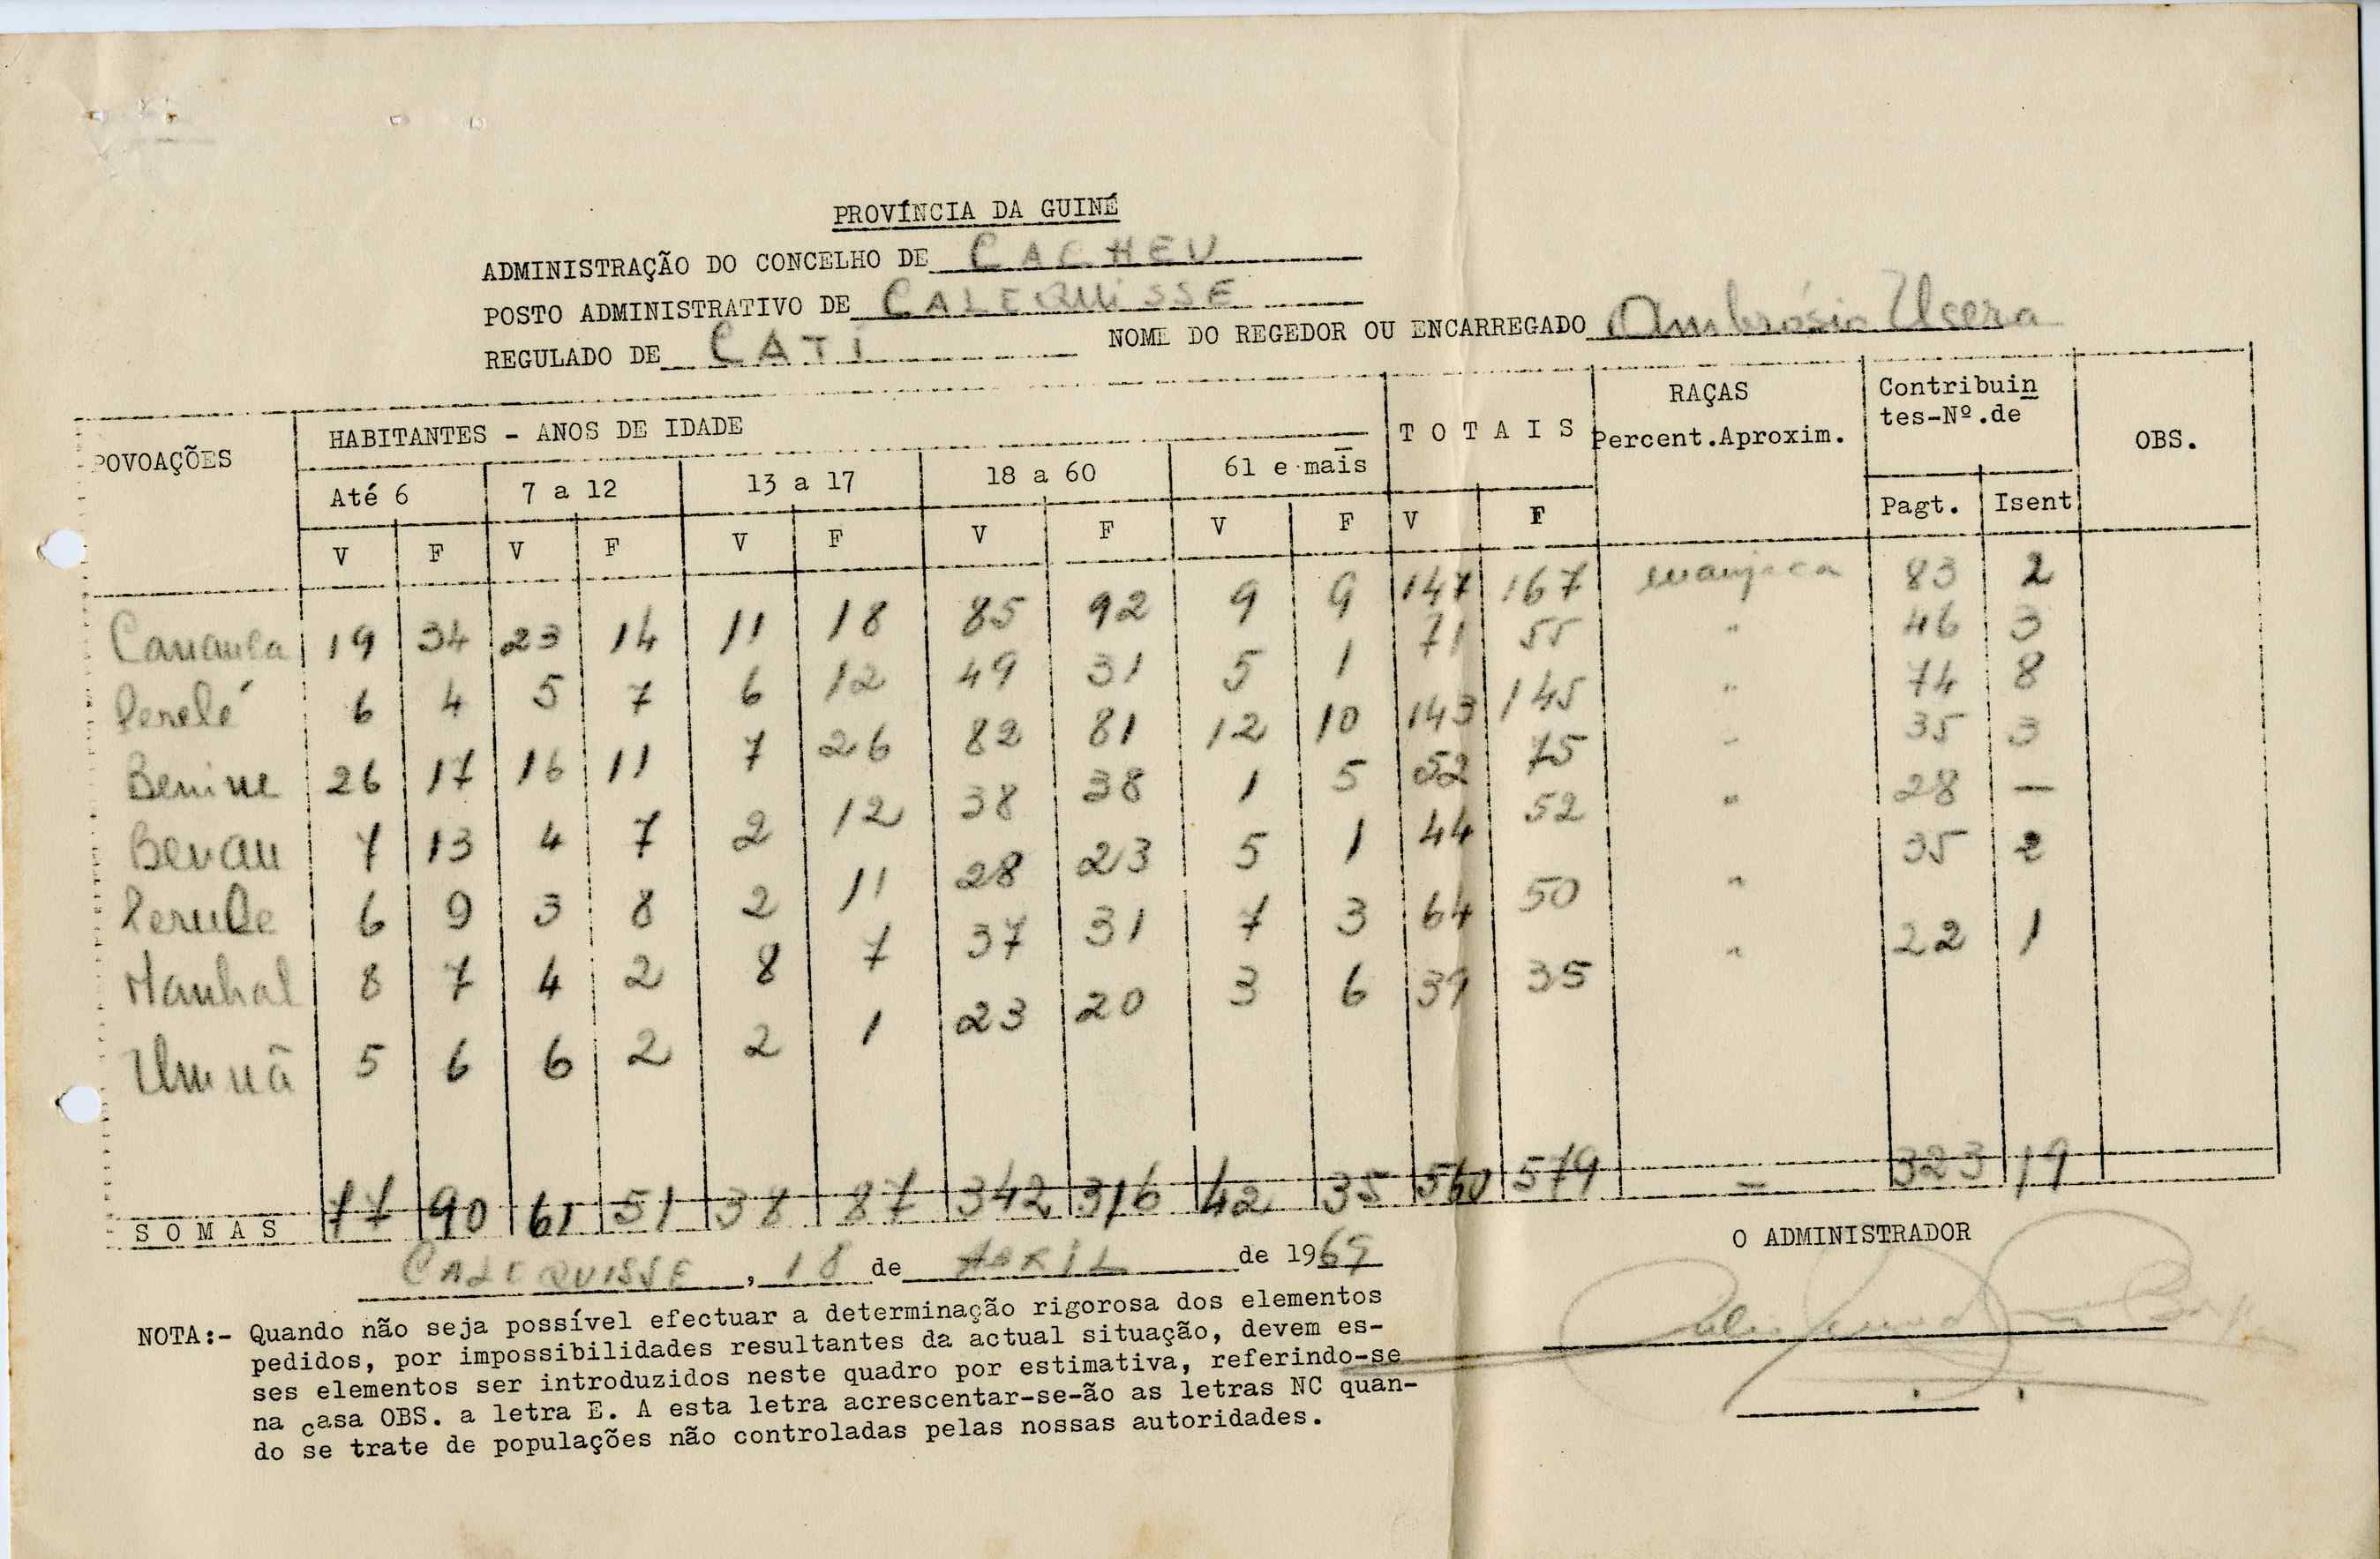 PROVÍNCIA DA GUINÉ
ADMINISTRAÇÃO DO CONCELHO DE CACHEU
POSTO ADMINISTRATIVO DE CALEQUISSE
REGULADO DE CATI NOME DO REGEDOR OU ENCARREGADO Ambrósio Ucera
POVOAÇÕES HABITANTES - ANOS DE IDADE T O T A I S RAÇAS Percent.Aproxim. Contribuin tes-Nº.de OBS.
Até 6 7 a 12 13 a 17 18 a 60 61 e mais Pagt. Isent
V F V F V F V F V F V F
19 34 23 14 11 18 85 92 9 9 147 167 manjaca 83 2
6 4 5 7 6 12 49 31 5 1 71 55 " 46 3
Benine 26 17 16 11 7 26 82 81 12 10 143 145 " 74 8
7 13 4 7 2 12 38 38 1 5 52 75 " 35 3
6 9 3 8 2 11 28 23 5 1 44 52 " 28 —
Manhal 8 7 4 2 8 7 37 31 7 3 64 50 " 35 2
5 6 6 2 2 1 23 20 3 6 39 35 " 22 1
S O M A S 77 90 61 51 38 87 342 316 42 35 560 579 = 323 19
CALEQUISSE, 18 de ABRIL de 1969
O ADMINISTRADOR
NOTA:- Quando não seja possível efectuar a determinação rigorosa dos elementos
pedidos, por impossibilidades resultantes da actual situação, devem es-
ses elementos ser introduzidos neste quadro por estimativa, referindo-se
na casa OBS. a letra E. A esta letra acrescentar-se-ão as letras NC quan-
do se trate de populações não controladas pelas nossas autoridades.